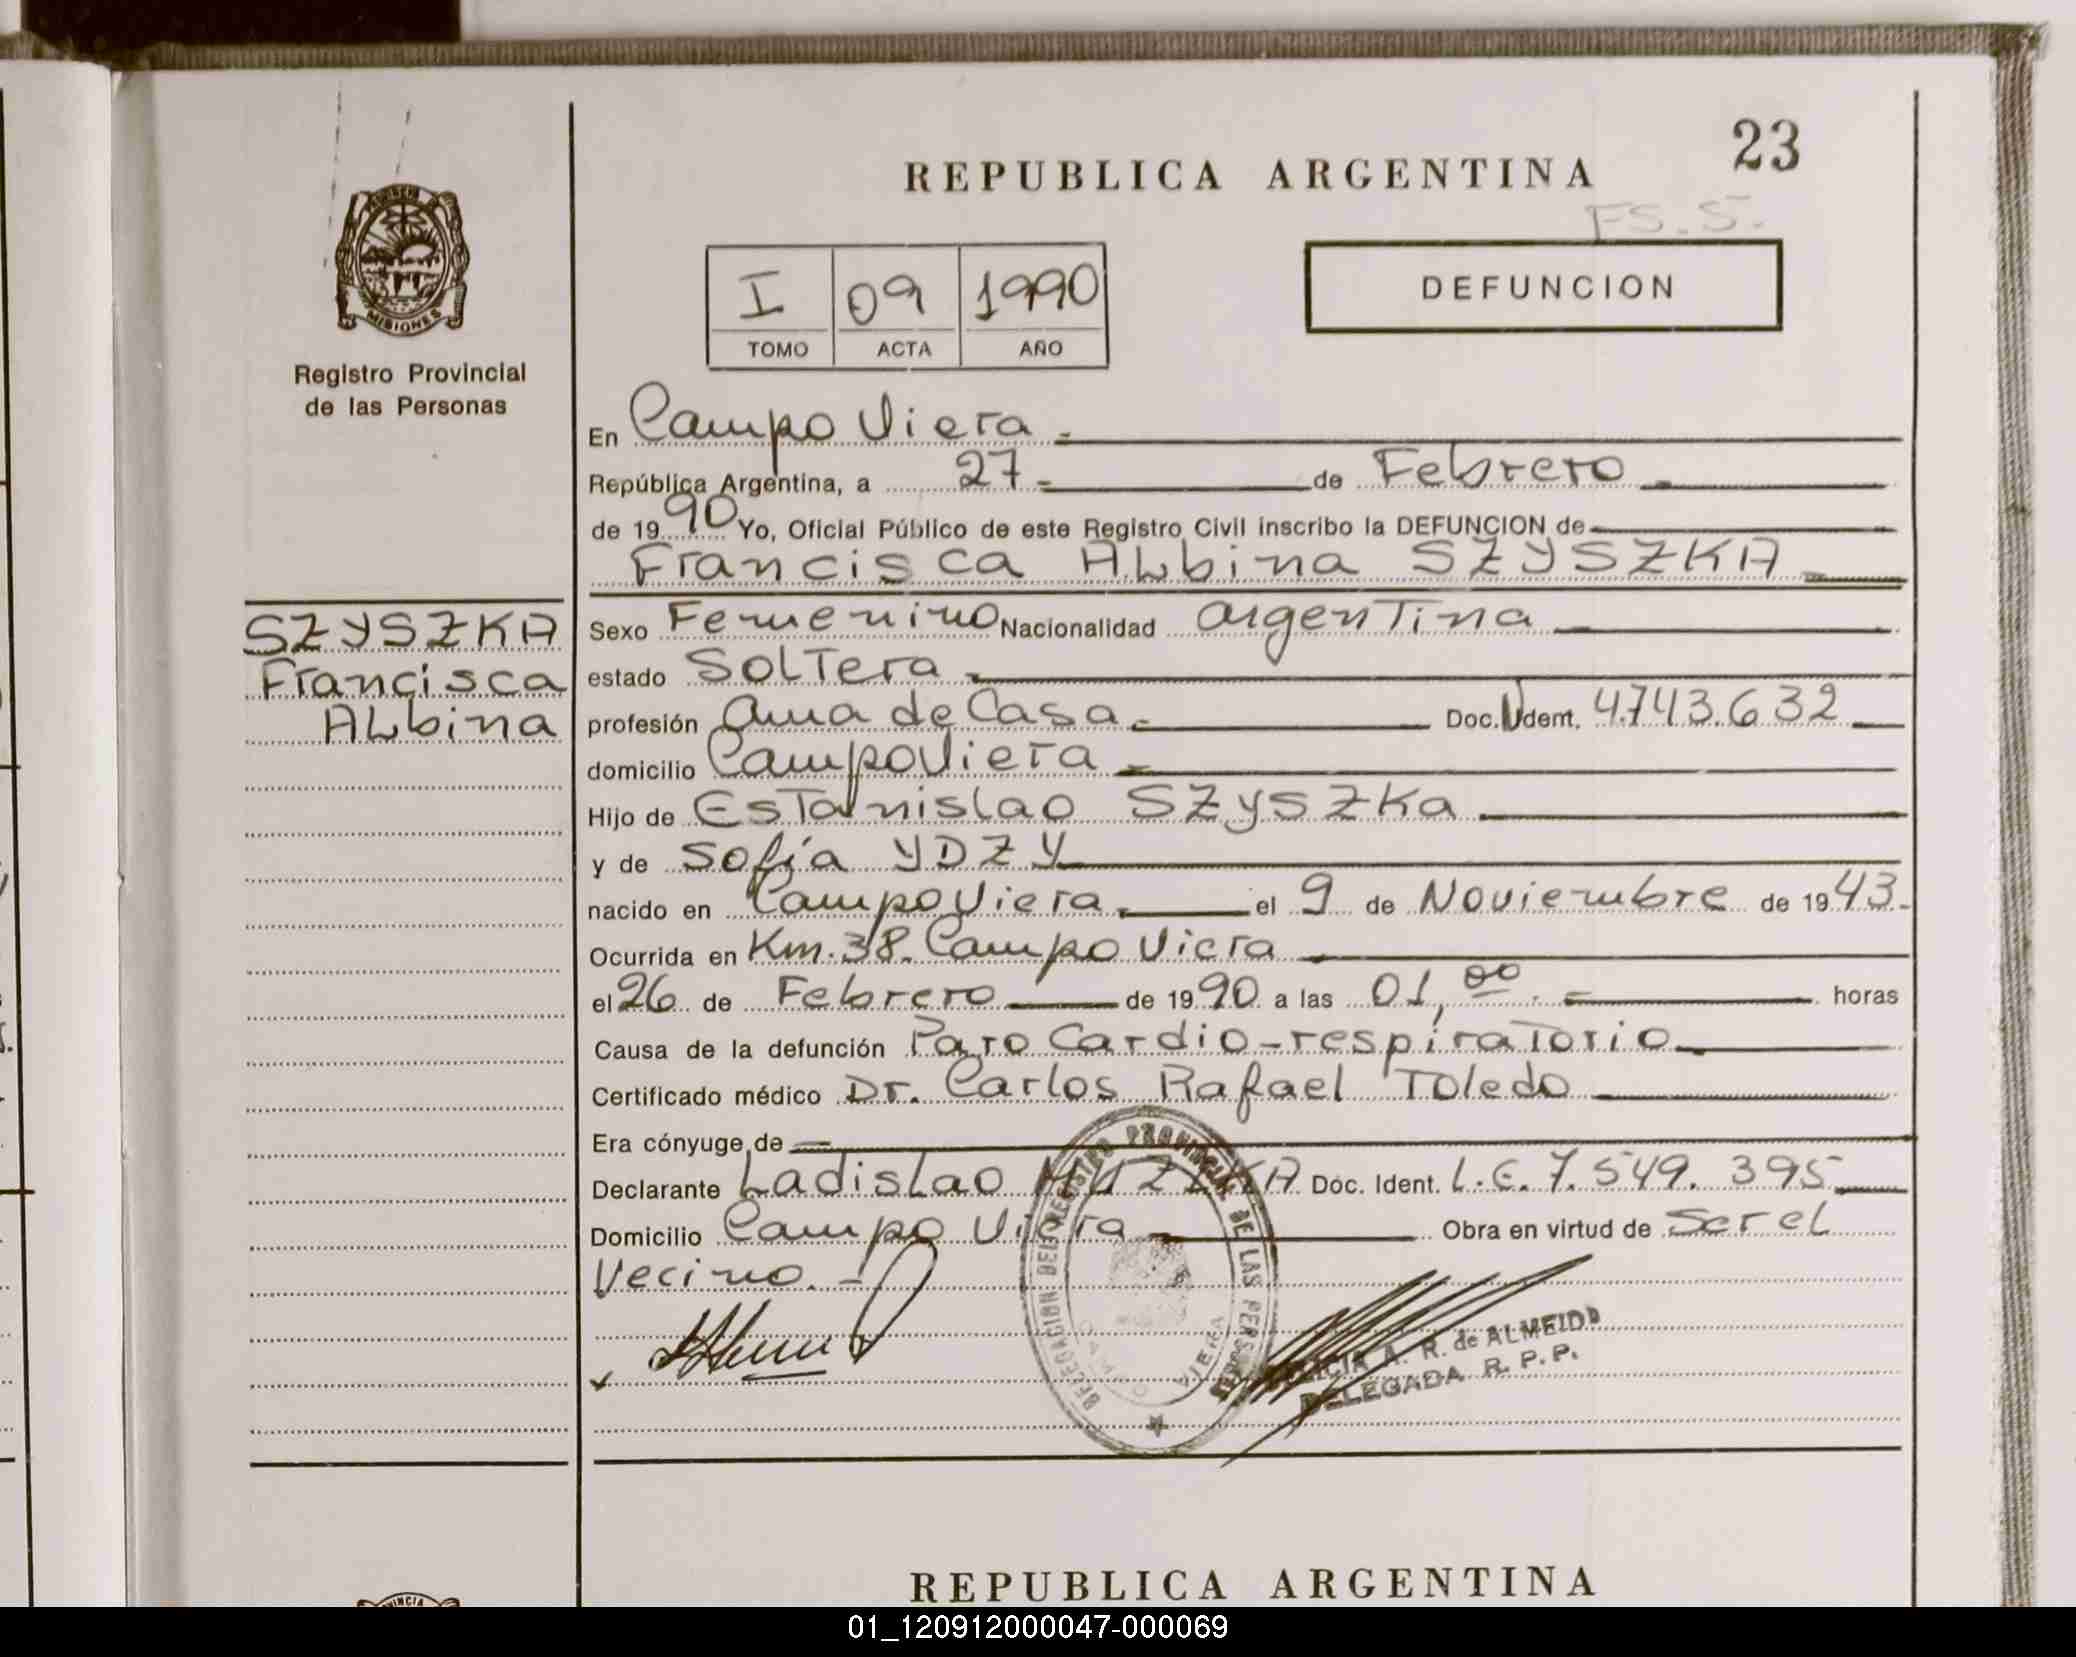 REPUBLICA ARGENTINA
23
FS. 5.
MISIONES
Registro Provincial
de las Personas
I 09 1990
TOMO ACTA AÑO
DEFUNCION
En Campo Viera
República Argentina, a 27 de Febrero
de 1990 Yo, Oficial Público de este Registro Civil inscribo la DEFUNCION de
Francisca ALbina SZYSZKA
SZYSZKA
Francisca
ALbina
Sexo Femenino Nacionalidad argentina
estado SolTera
profesión ama de Casa. Doc. Ident. 4.743.632
domicilio Campo Viera
Hijo de Estanislao SZYSZKa
y de Sofía YDZY
nacido en Campo Viera el 9 de Noviembre de 1943.
Ocurrida en Km. 38. Campo Viera
el 26 de Febrero de 1990 a las 01,00 horas
Causa de la defunción Paro Cardio-respiratorio
Certificado médico Dr. Carlos Rafael Toledo
Era cónyuge de
Declarante Ladislao Doc. Ident. L.E. 7.549.395
Domicilio Campo Viera Obra en virtud de Ser el
Vecino.-
DELEGACION DEL REGISTRO PROVINCIAL DE LAS PERSONAS
CAMPO VIERA
A. R. de ALMEIDA
DELEGADA R. P. P.
REPUBLICA ARGENTINA
01_120912000047-000069